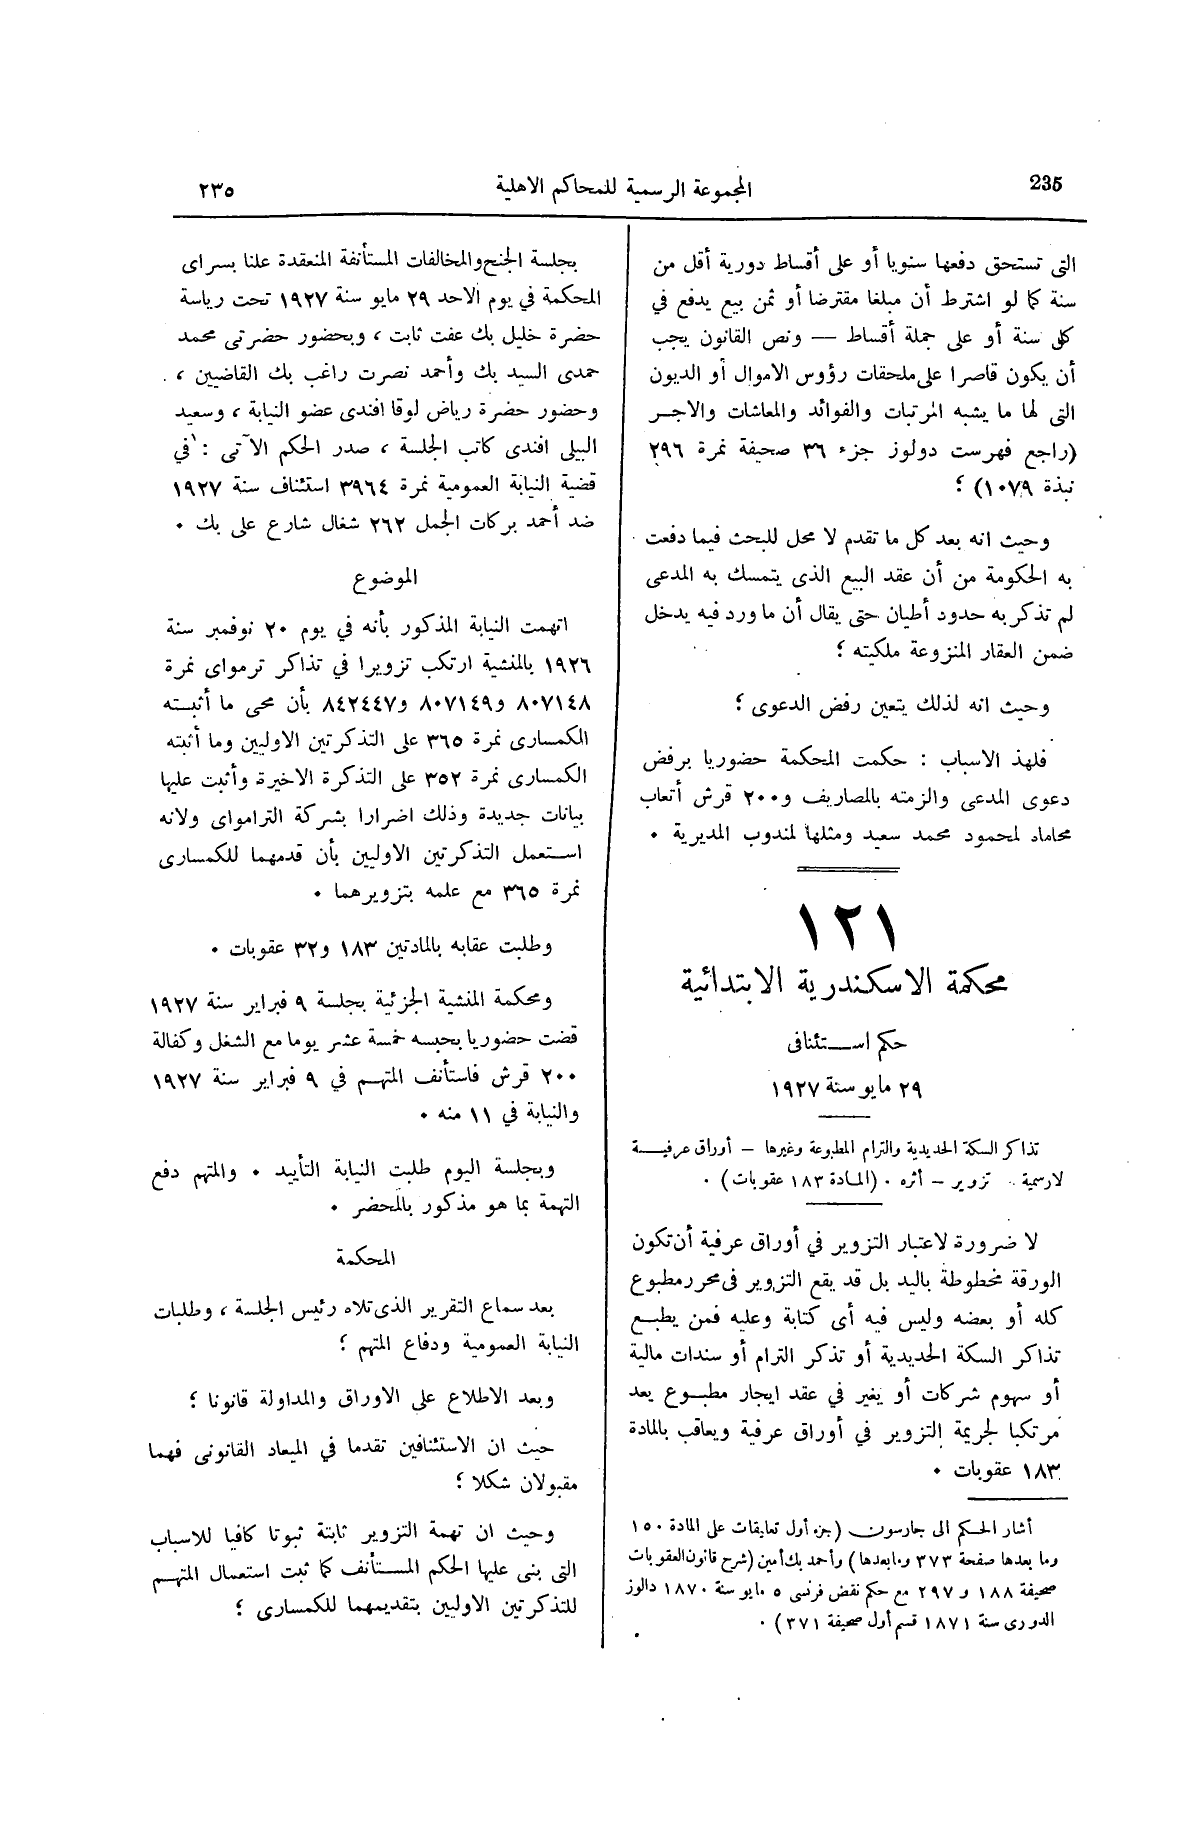 235
المجموعة الرسمية للمحاكم الاهلية
٢٣٥
التى تستحق دفعها سنويا أو على أقساط دورية أقل من
سنة كما لو اشترط أن مبلغا مقترضا أو ثمن بيع يدفع في
كل سنة أو على جملة أقساط — ونص القانون يجب
أن يكون قاصرا على ملحقات رؤوس الاموال أو الديون
التى لها ما يشبه المرتبات والفوائد والمعاشات والاجر
(راجع فهرست دولوز جزء ٣٦ صحيفة نمرة ٢٩٦
نبذة ١٠٧٩) ؛
وحيث انه بعد كل ما تقدم لا محل للبحث فيما دفعت
به الحكومة من أن عقد البيع الذى يتمسك به المدعى
لم تذكر به حدود أطيان حتى يقال أن ما ورد فيه يدخل
ضمن العقار المنزوعة ملكيته ؛
وحيث انه لذلك يتعين رفض الدعوى ؛
فلهذ الاسباب : حكمت المحكمة حضوريا برفض
دعوى المدعى والزمته بالمصاريف و٢٠٠ قرش أتعاب
محاماد لمحمود محمد سعيد ومثلها لمندوب المديرية .
١٢١
محكمة الاسكندرية الابتدائية
حكم استئنافى
٢٩ مايو سنة ١٩٢٧
تذاكر السكة الحديدية والترام المطبوعة وغيرها — أوراق عرفية
لارسمية .. تزوير — أثره . (المادة ١٨٣ عقوبات) .
لا ضرورة لاعتبار التزوير في أوراق عرفية أن تكون
الورقة مخطوطة باليد بل قد يقع التزوير فى محرر مطبوع
كله أو بعضه وليس فيه أى كتابة وعليه فمن يطبع
تذاكر السكة الحديدية أو تذكر الترام أو سندات مالية
أو سهوم شركات أو يغير في عقد ايجار مطبوع يعد
مرتكبا لجريمة التزوير في أوراق عرفية ويعاقب بالمادة
١٨٣ عقوبات .
أشار الحكم الى جارسون (جزء أول تعليقات على المادة ١٥٠
وما بعدها صفحة ٣٧٣ وما بعدها) وأحمد بك أمين (شرح قانون العقوبات
صحيفة ١٨٨ و ٢٩٧ مع حكم نقض فرنسى ٥ مايو سنة ١٨٧٠ دالوز
الدورى سنة ١٨٧١ قسم أول صحيفة ٣٧١) .
بجلسة الجنح والمخالفات المستأنفة المنعقدة علنا بسراى
المحكمة في يوم الاحد ٢٩ مايو سنة ١٩٢٧ تحت رياسة
حضرة خليل بك عفت ثابت ، وبحضور حضرتى محمد
حمدى السيد بك وأحمد نصرت راغب بك القاضيين ،
وحضور حضرة رياض لوقا افندى عضو النيابة ، وسعيد
البيلى افندى كاتب الجلسة ، صدر الحكم الآتى : في
قضية النيابة العمومية نمرة ٣٩٦٤ استئناف سنة ١٩٢٧
ضد أحمد بركات الجمل ٢٦٢ شغال شارع على بك .
الموضوع
اتهمت النيابة المذكور بأنه في يوم ٢٠ نوفمبر سنة
١٩٢٦ بالمنشية ارتكب تزويرا في تذاكر ترمواى نمرة
٨٠٧١٤٨ و٨٠٧١٤٩ و٨٤٢٤٤٧ بأن محى ما أثبته
الكمسارى نمرة ٣٦٥ على التذكرتين الاوليين وما أثبته
الكمسارى نمرة ٣٥٢ على التذكرة الاخيرة وأثبت عليها
بيانات جديدة وذلك اضرارا بشركة الترامواى ولانه
استعمل التذكرتين الاوليين بأن قدمهما للكمسارى
نمرة ٣٦٥ مع علمه بتزويرهما .
وطلبت عقابه بالمادتين ١٨٣ و٣٢ عقوبات .
ومحكمة المنشية الجزئية بجلسة ٩ فبراير سنة ١٩٢٧
قضت حضوريا بحبسه خمسة عشر يوما مع الشغل وكفالة
٢٠٠ قرش فاستأنف المتهم في ٩ فبراير سنة ١٩٢٧
والنيابة في ١١ منه .
وبجلسة اليوم طلبت النيابة التأييد . والمتهم دفع
التهمة بما هو مذكور بالمحضر .
المحكمة
بعد سماع التقرير الذى تلاه رئيس الجلسة ، وطلبات
النيابة العمومية ودفاع المتهم ؛
وبعد الاطلاع على الاوراق والمداولة قانونا ؛
حيث ان الاستئنافين تقدما في الميعاد القانونى فهما
مقبولان شكلا ؛
وحيث ان تهمة التزوير ثابتة ثبوتا كافيا للاسباب
التى بنى عليها الحكم المستأنف كما ثبت استعمال المتهم
للتذكرتين الاوليين بتقديمهما للكمسارى ؛